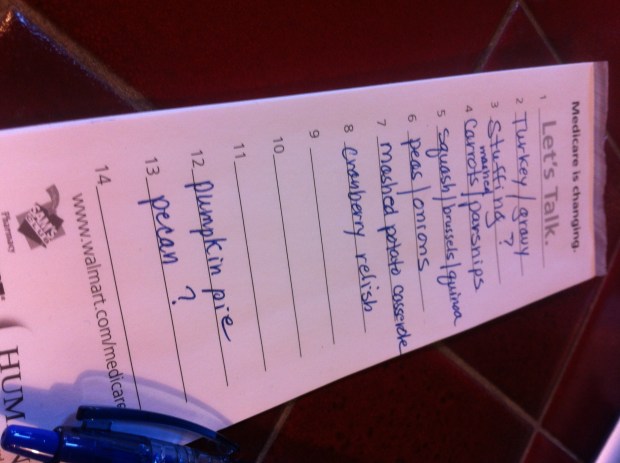 Medicare is changing.
1 Let's Talk.
2 Turkey/gravy
3 Stuffing ?
4 Carrots mashed/parsnips
5 squash/brussels/quinoa
6 peas/onions
7 mashed potato casserole
8 cranberry relish
9
10
11
12 pumpkin pie
13 pecan ?
14
www.walmart.com/medicare
Pharmacy
HUM